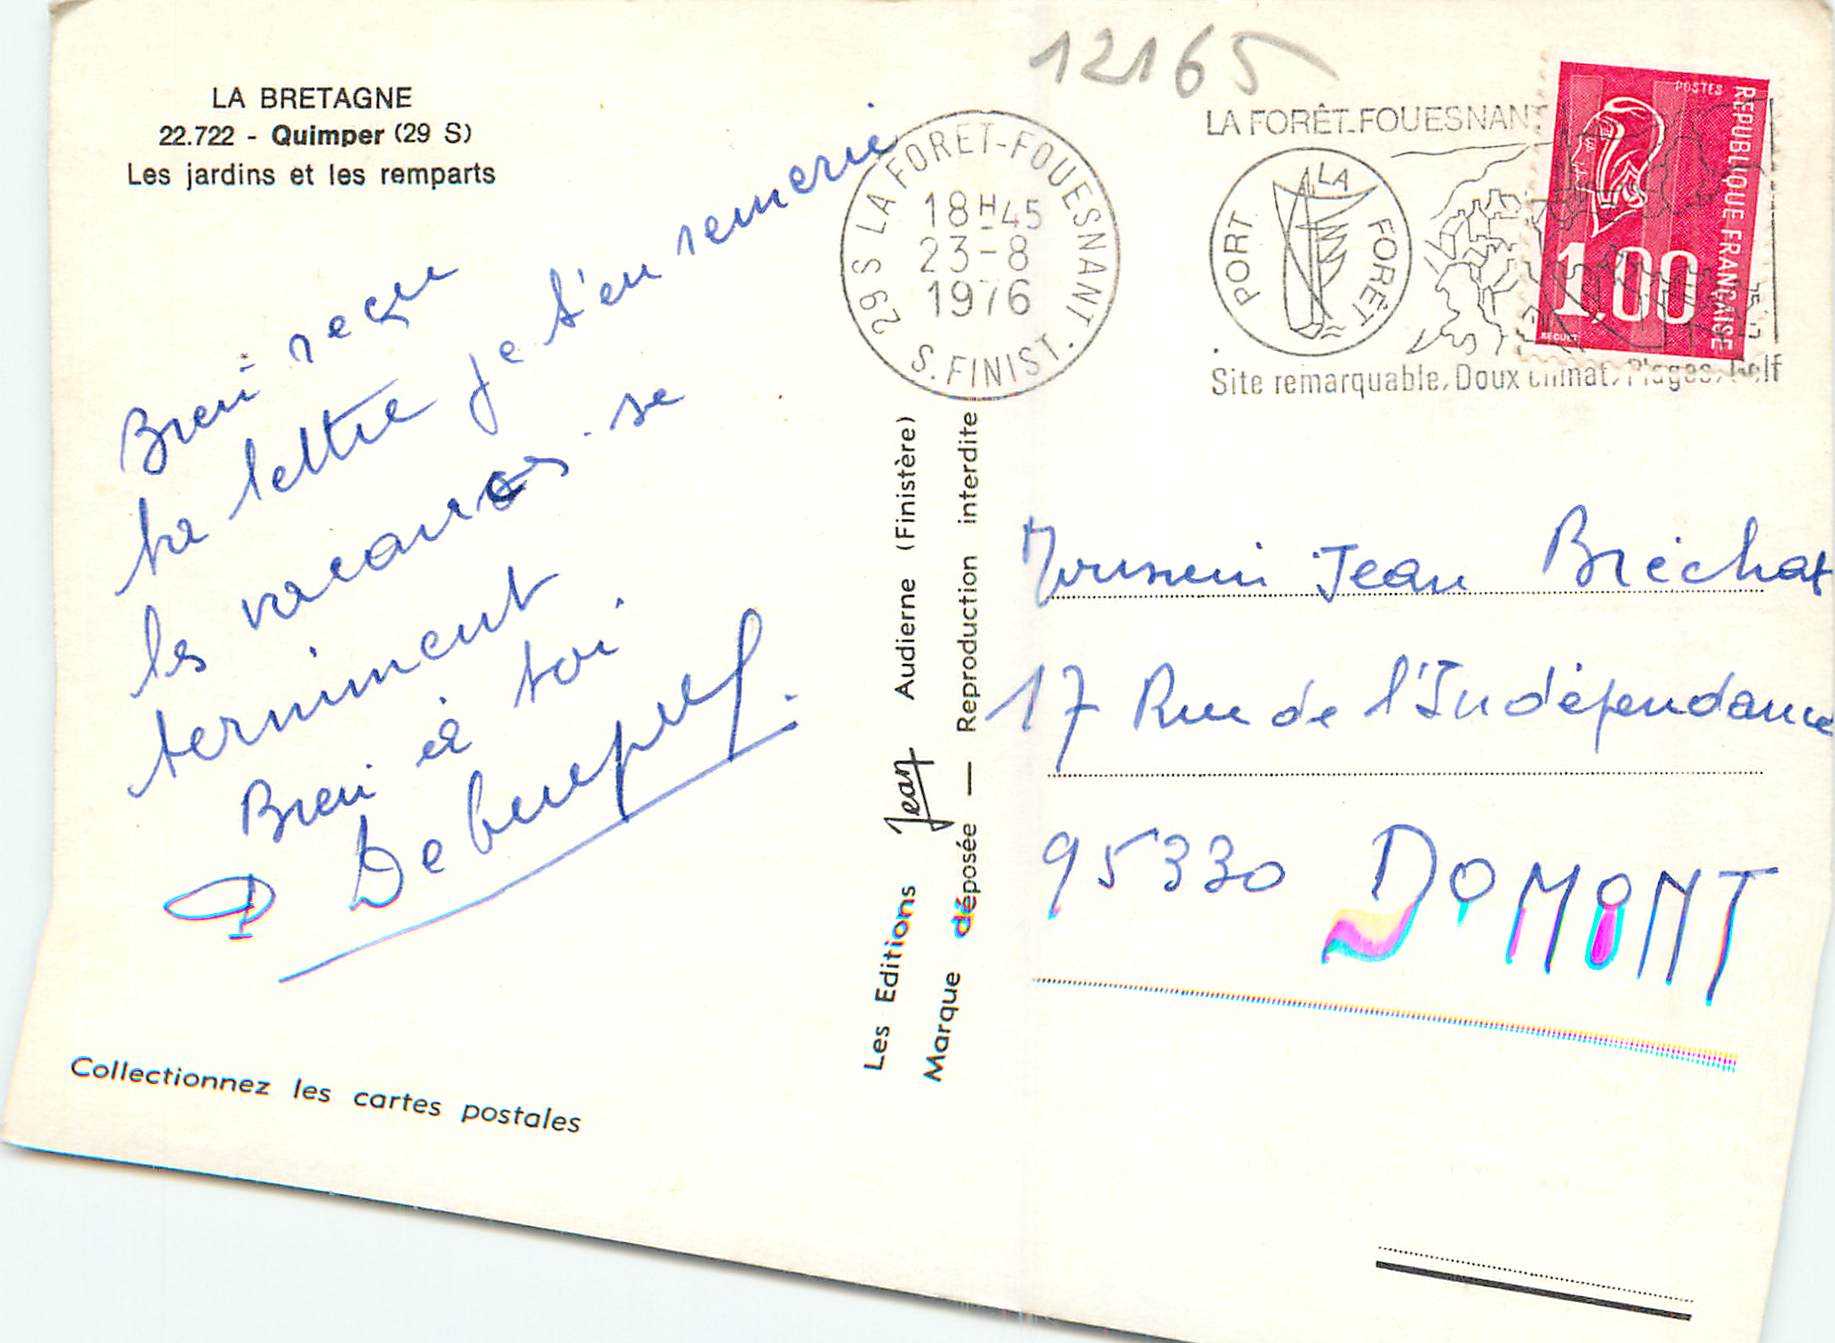 LA BRETAGNE
22.722 - Quimper (29 S)
Les jardins et les remparts
Bien reçu
ta lettre je t'en remercie
les vacances se
terminent
Bien à toi
Collectionnez les cartes postales
Les Editions Jean Audierne (Finistère)
Marque déposée — Reproduction interdite
12165
29S LA FORET-FOUESNANT
18H45
23-8
1976
S. FINIST.
LA FORÊT-FOUESNANT
PORT LA FORÊT
Site remarquable, Doux climat, Plages, Golf
POSTES
REPUBLIQUE FRANÇAISE
1,00
BEQUET
Monsieur Jean Bréchat
17 Rue de l'Indépendance
95330 DOMONT